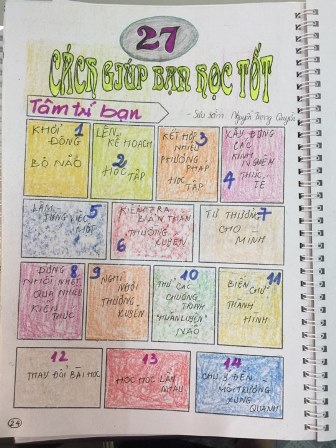 27
CÁCH GIÚP BẠN HỌC TỐT
Tâm trí bạn
- Sưu tầm: Nguyễn Trọng
KHỞI 1
ĐỘNG
BỘ NÃO
LÊN
KẾ HOẠCH
2
HỌC TẬP
KẾT HỢP 3
NHIỀU
PHƯƠNG PHÁP
HỌC TẬP
XÂY DỰNG
CÁC
KINH
NGHIỆM
4 THỰC
TẾ
LÀM 5
TỪNG VIỆC
MỘT
KIỂM TRA
BẢN THÂN
6 THƯỜNG
XUYÊN
TỰ THƯỞNG 7
CHO
MÌNH
ĐỪNG 8
NHỒI NHÉT
QUÁ NHIỀU
KIẾN
THỨC
9
NGHỈ
NGƠI
THƯỜNG
XUYÊN
10
THỬ CÁC
CHƯƠNG
TRÌNH
"HUẤN LUYỆN"
NÃO
11
BIẾN
CHỮ
THÀNH
HÌNH
12
THAY ĐỔI BÀI HỌC
13
HỌC HỎI LẪN
NHAU
14
CHÚ Ý ĐẾN
MÔI TRƯỜNG
XUNG
QUANH